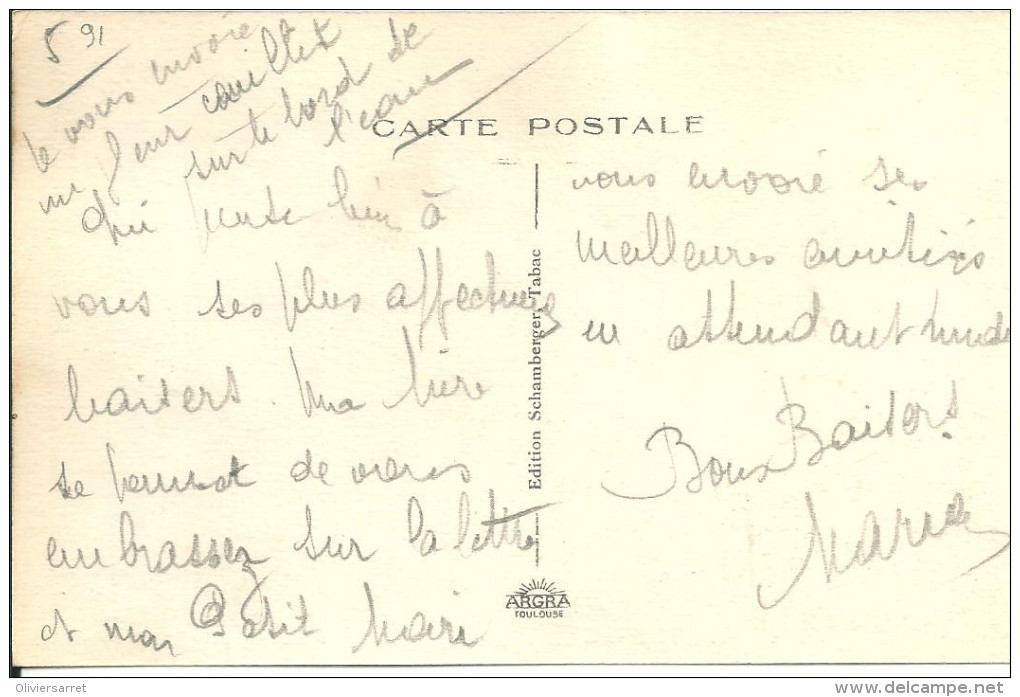 5 91
Je vous envoie
fleur cueillex
sur le bord de
l'eau
CARTE POSTALE
qui pense bien à
vous ses plus affectueux
baisers. Ma
se permet de vous
embrassez sur la lettre
et mon Petit
Edition Schamberger, Tabac
ARGRA
TOULOUSE
vous envoie ses
meilleures amitiés
en attendant
Bons Baisers.
Maria
Oliviersarret
http://www.delcampe.net